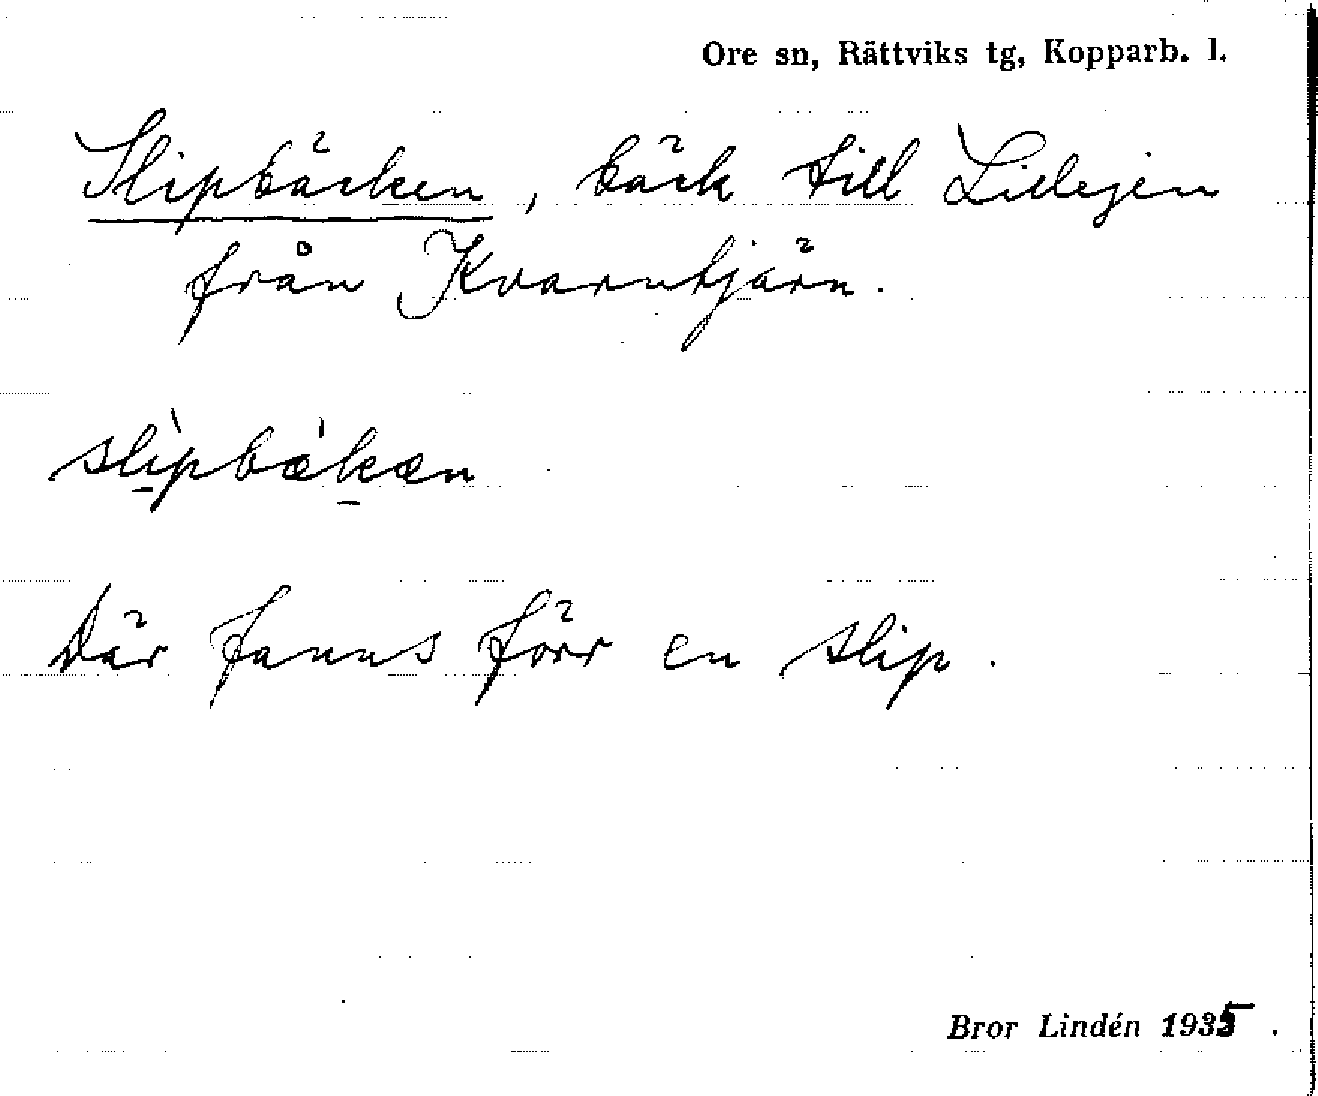 Ore sn, Rättviks tg, Kopparb. l.
Slipbäcken, bäck till Lillejen
från Kvarntjärn.
slìpbækæn
Där fanns förr en slip.
Bror Lindén 1935.